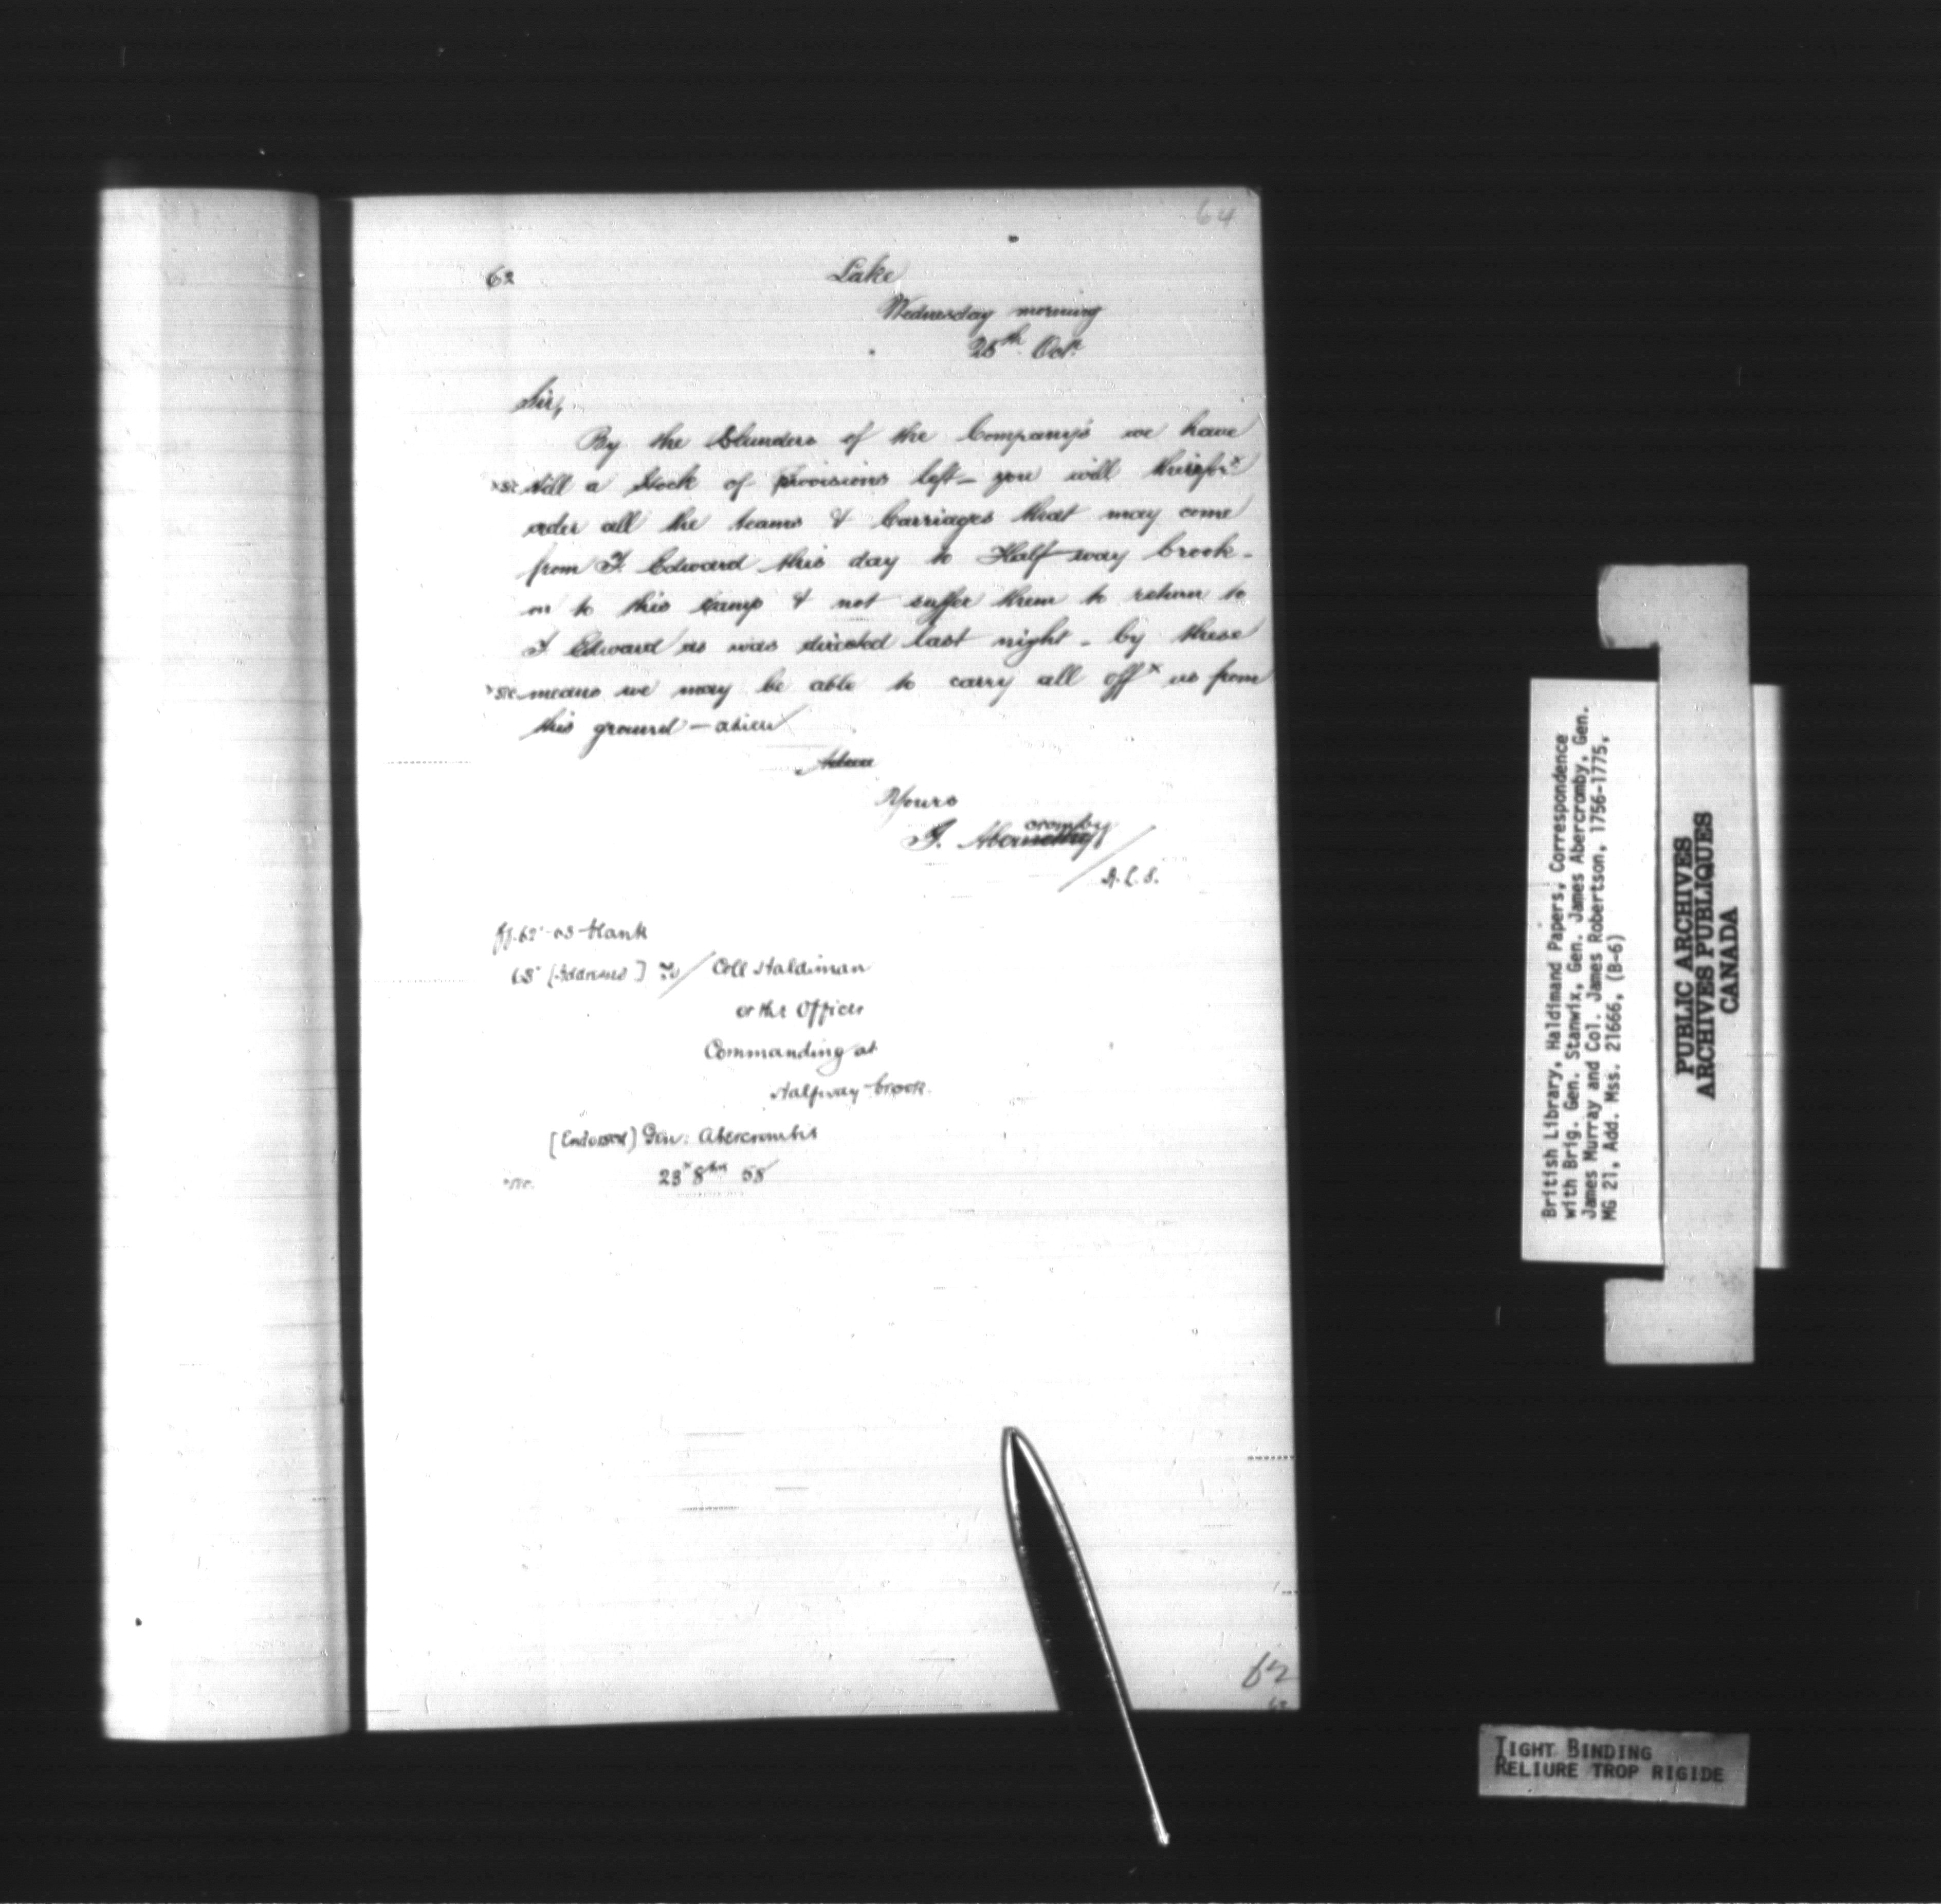 64
62
Lake
Wednesday morning
25th Octr.
Sir,
By the Blunders of the Company's we have
xsic still a Stock of Provisions left_ you will thereforx
order all the teams & Carriages that may come
from F. Edward this day to Half way brook_
on to this Camp & not suffer them to return to
F. Edward as was directed last night_ by these
xsic means we may be able to carry all offx us from
this ground — adieu
Adieu
Yours
J. Abercromby
A.L.S.
ff. 62v-63 blank
63v [Address] To/ Coll Haldiman
or the Officer
Commanding at
Halfway brook.
[Endorsed] Gen: Abercrombie
xsic. 23x 8bre 58
62
British Library, Haldimand Papers, Correspondence
with Brig. Gen. Stanwix, Gen. James Abercromby, Gen.
James Murray and Col. James Robertson, 1756-1775,
MG 21, Add. Mss. 21666, (B-6)
PUBLIC ARCHIVES
ARCHIVES PUBLIQUES
CANADA
TIGHT BINDING
RELIURE TROP RIGIDE